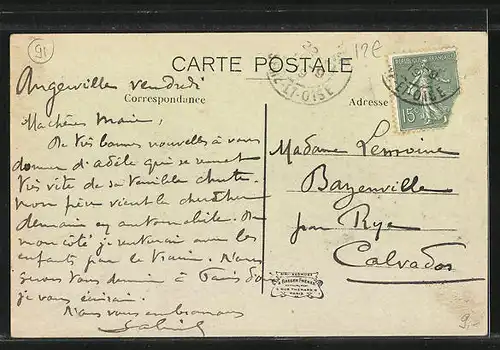 91
12€
CARTE POSTALE
Correspondance
Adresse
RÉPUBLIQUE FRANÇAISE
15c
ET-OISE
ET-OISE
Angerville vendredi
Ma chère Marie,
De très bonnes nouvelles à vous
donner d'adèle qui se remet
très vite de sa terrible chute.
mon père vient la chercher
demain en automobile. De
mon côté, je rentrerai avec les
enfants par le train. Nous
serons tous demain à Paris d'où
je vous écrirai.
Nous vous embrassons
Madame Lemoine
Bazenville
par Rye
Calvados
PARIS
9.-